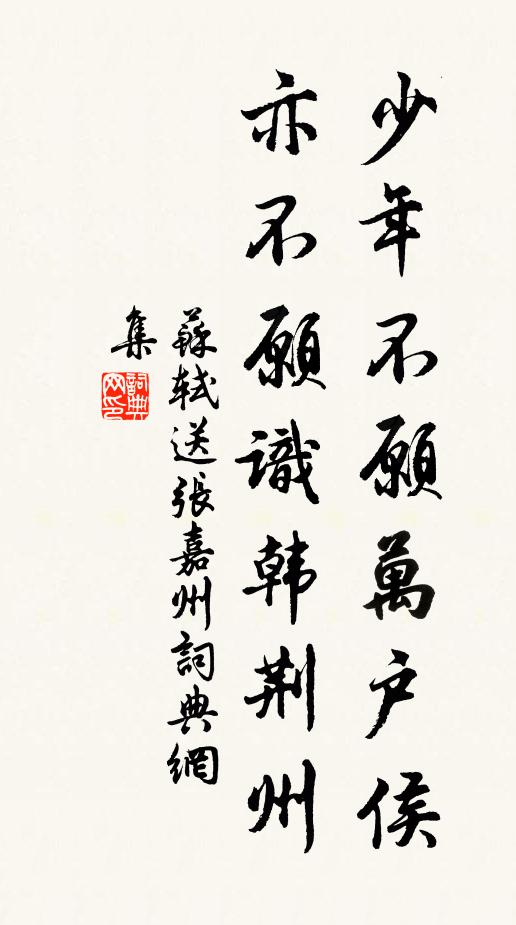 少年不願萬戶侯
亦不願識韩荆州
蘇軾送張嘉州詞典網
集
詞典
网印